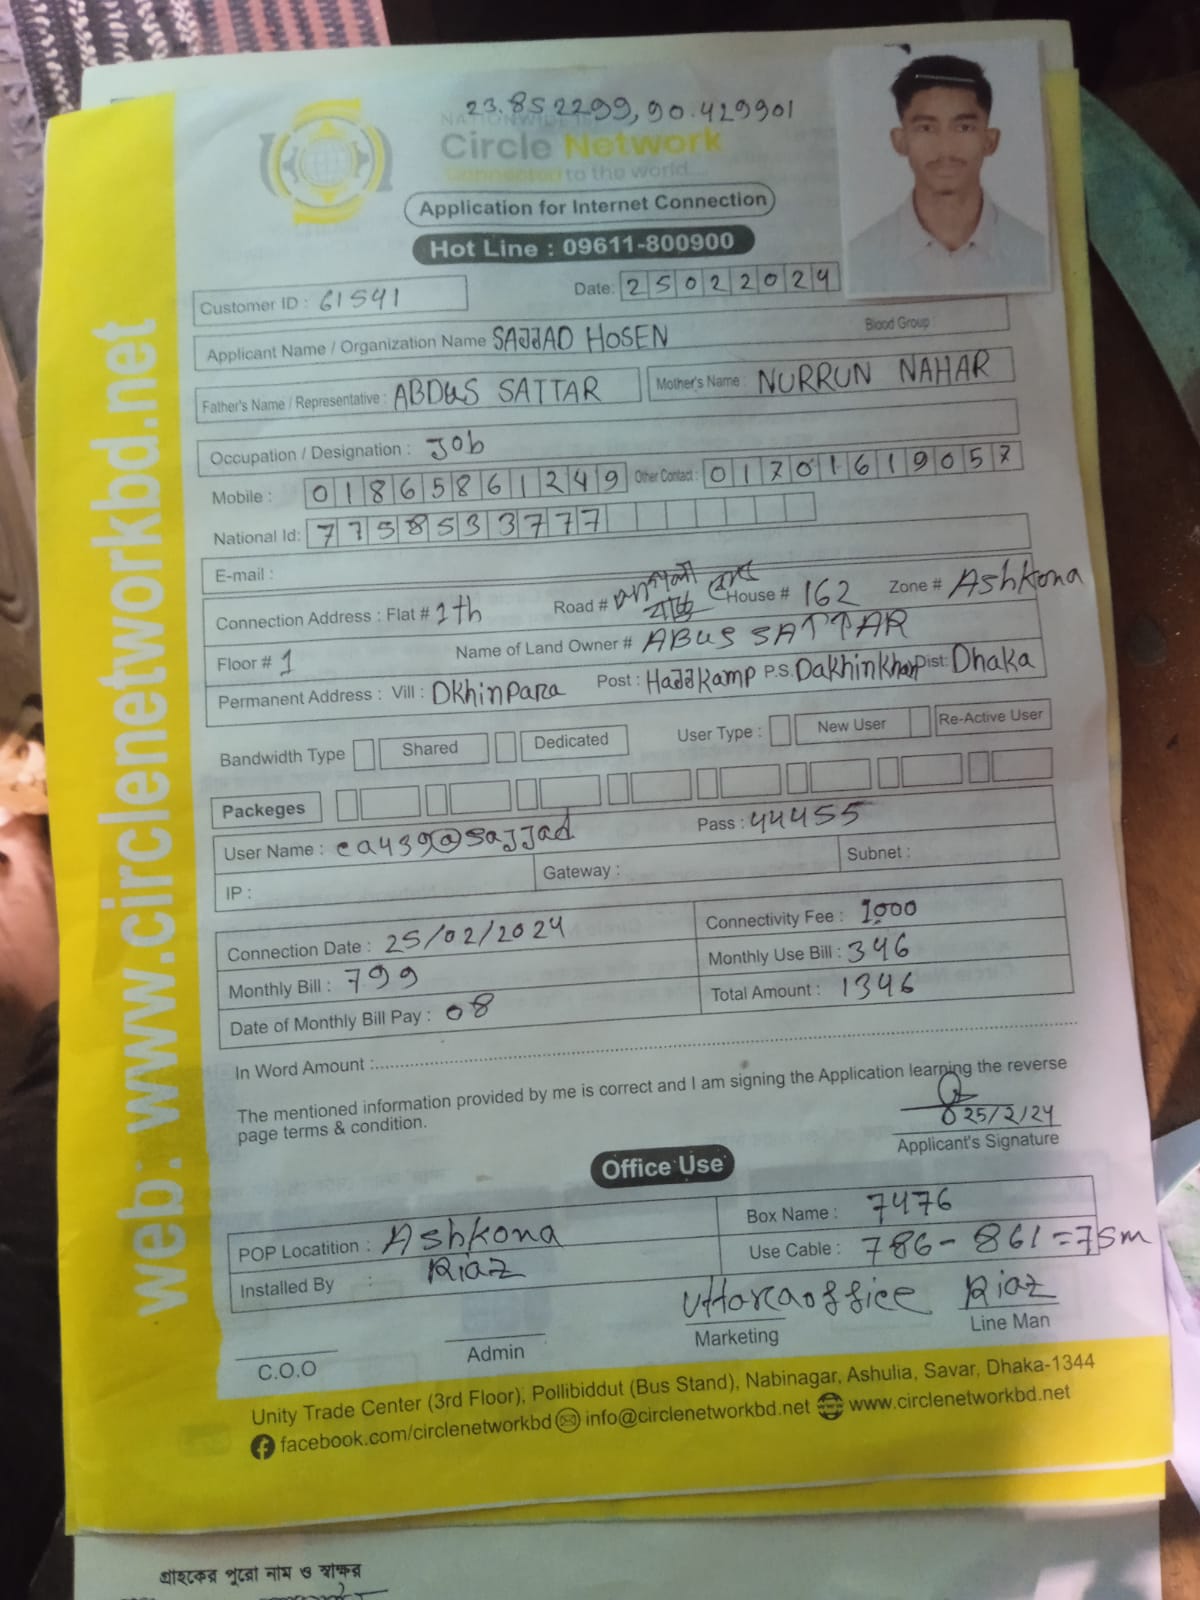 23.852299, 90.429901
NATIONWIDE
Circle Network
Connected to the world...
Application for Internet Connection
Hot Line : 09611-800900
Customer ID : 61541
Date: 25022024
Applicant Name / Organization Name SAJJAD HOSEN Blood Group :
Father's Name / Representative : ABDUS SATTAR Mother's Name : NURRUN NAHAR
Occupation / Designation : Job
Mobile : 01865861249 Other Contact : 01701619057
National Id: 7758533777
E-mail :
Connection Address : Flat # 1th Road # House # 162 Zone # Ashkona
Floor # 1 Name of Land Owner # ABUS SATTAR
Permanent Address : Vill : DKhinpara Post : HaJJKamp P.S. DaKhinKhan Dist: Dhaka
Bandwidth Type Shared Dedicated User Type : New User Re-Active User
Packeges
User Name : ca439@sajjad Pass : 44455
IP : Gateway : Subnet :
Connection Date : 25/02/2024 Connectivity Fee : 1000
Monthly Bill : 799 Monthly Use Bill : 346
Date of Monthly Bill Pay : 08 Total Amount : 1346
In Word Amount :
The mentioned information provided by me is correct and I am signing the Application learning the reverse
page terms & condition.
25/2/24
Applicant's Signature
Office Use
POP Locatition : Ashkona Box Name : 7476
Installed By : Riaz Use Cable : 786- 861=75m
Uttara office Riaz
C.O.O Admin Marketing Line Man
Unity Trade Center (3rd Floor), Pollibiddut (Bus Stand), Nabinagar, Ashulia, Savar, Dhaka-1344
facebook.com/circlenetworkbd info@circlenetworkbd.net www.circlenetworkbd.net
web: www.circlenetworkbd.net
গ্রাহকের পুরো নাম ও স্বাক্ষর